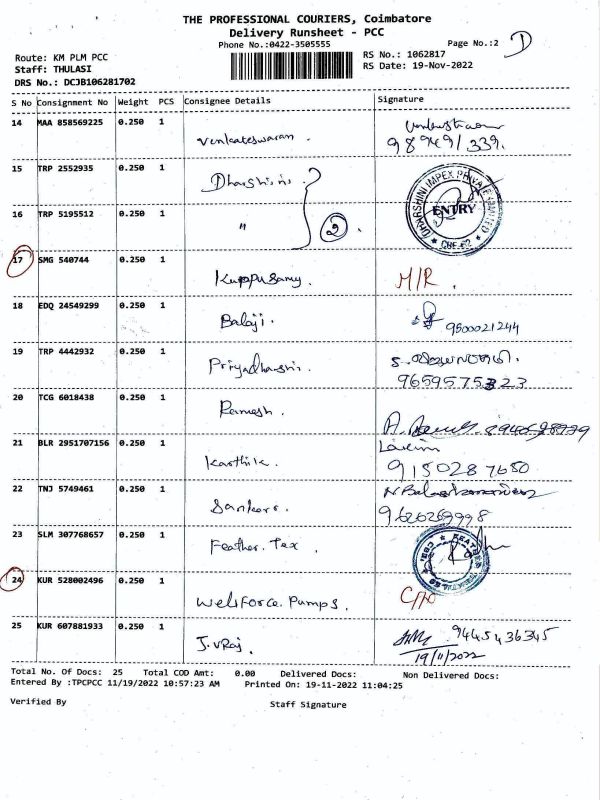 THE PROFESSIONAL COURIERS, Coimbatore
Delivery Runsheet - PCC
Phone No.:0422-3505555
Page No.:2
Route: KM PLM PCC
RS No.: 1062817
Staff: THULASI
RS Date: 19-Nov-2022
DRS No.: DCJB106281702
S No Consignment No Weight PCS Consignee Details Signature
14 MAA 858569225 0.250 1 Venkateswaran.
989491339.
15 TRP 2552935 0.250 1 Dharshini
DHARSHINI IMPEX PRIVATE LIMITED
ENTRY
CBE-62
16 TRP 5195512 0.250 1 " 2.
17 SMG 540744 0.250 1 Kuppusamy. M/R.
18 EDQ 24549299 0.250 1 Balaji. 9500021244
19 TRP 4442932 0.250 1 Priyadharshi.
9659575323
20 TCG 6018438 0.250 1 Ramesh.
21 BLR 2951707156 0.250 1 Karthik.
9150287650
22 TNJ 5749461 0.250 1 Sankara.
9626269998
23 SLM 307768657 0.250 1 Feather. Tex.
24 KUR 528002496 0.250 1 Welforce. Pumps.
25 KUR 607881933 0.250 1 J.V Raj. 9445436345
19/11/2022
Total No. Of Docs: 25 Total COD Amt: 0.00 Delivered Docs: Non Delivered Docs:
Entered By :TPCPCC 11/19/2022 10:57:23 AM Printed On: 19-11-2022 11:04:25
Verified By Staff Signature